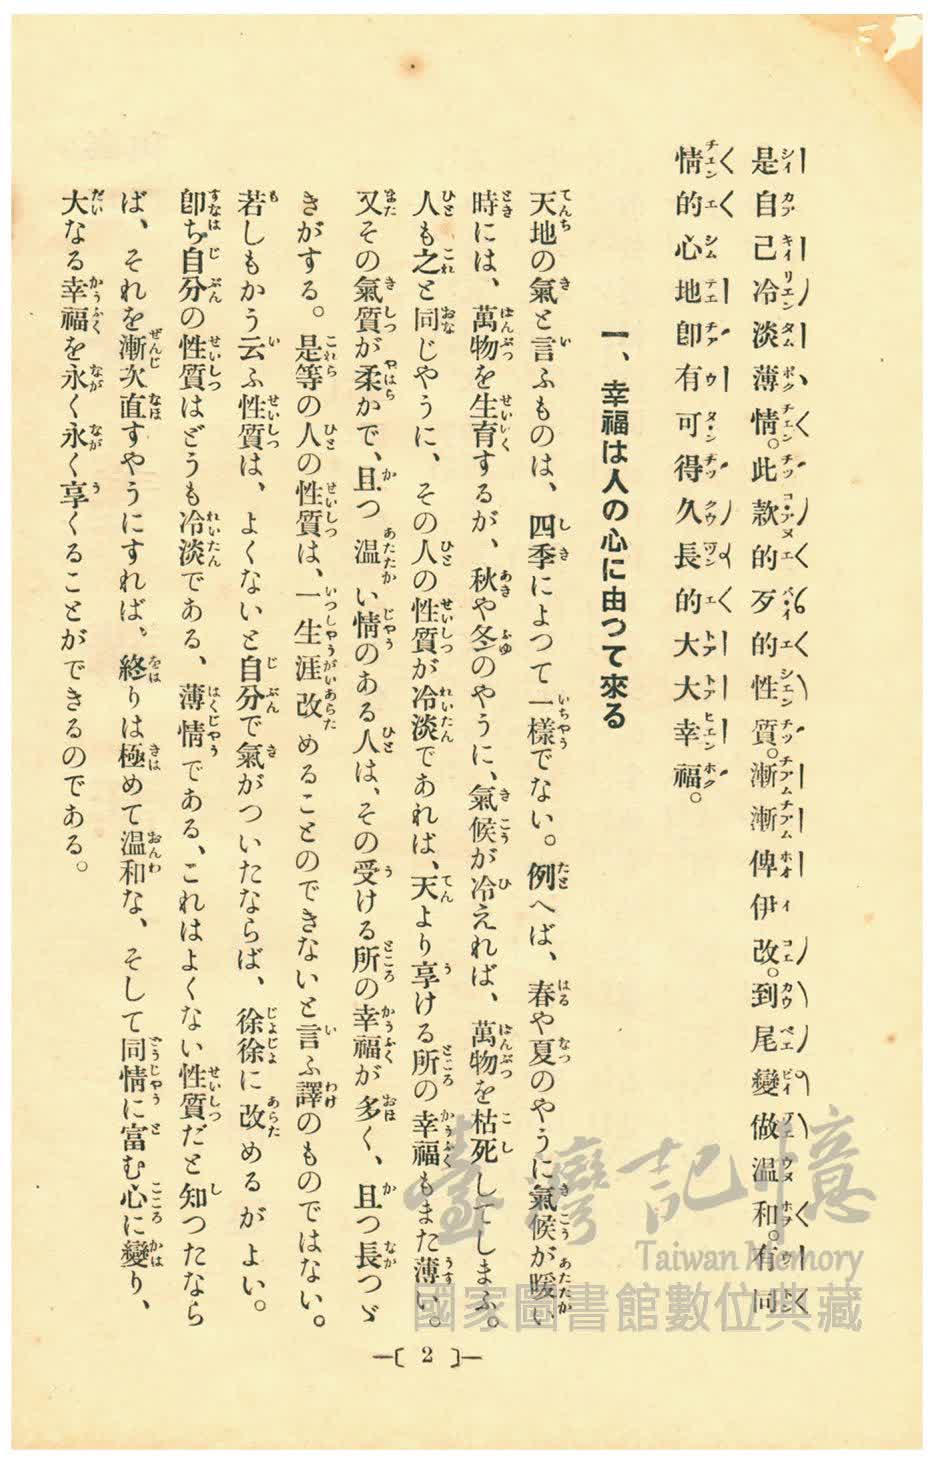 是自己冷淡薄情。此款的歹的性質。漸漸俾伊改。到尾變做温和。有同
情的心地卽有可得久長的大大幸福。
一、幸福は人の心に由つて來る
天地の氣と言ふものは、四季によつて一樣でない。例へば、春や夏のやうに氣候が暖い
時には、萬物を生育するが、秋や冬のやうに、氣候が冷えれば、萬物を枯死してしまふ。
人も之と同じやうに、その人の性質が冷淡であれば、天より享ける所の幸福もまた薄い。
又その氣質が柔かで、且つ温い情のある人は、その受ける所の幸福が多く、且つ長つゞ
きがする。是等の人の性質は、一生涯改めることのできないと言ふ譯のものではない。
若しもかう云ふ性質は、よくないと自分で氣がついたならば、徐徐に改めるがよい。
卽ち自分の性質はどうも冷淡である、薄情である、これはよくない性質だと知つたなら
ば、それを漸次直すやうにすれば、終りは極めて温和な、そして同情に富む心に變り、
大なる幸福を永く永く享くることができるのである。
—〔 2 〕—
臺灣記憶
Taiwan Memory
國家圖書館數位典藏